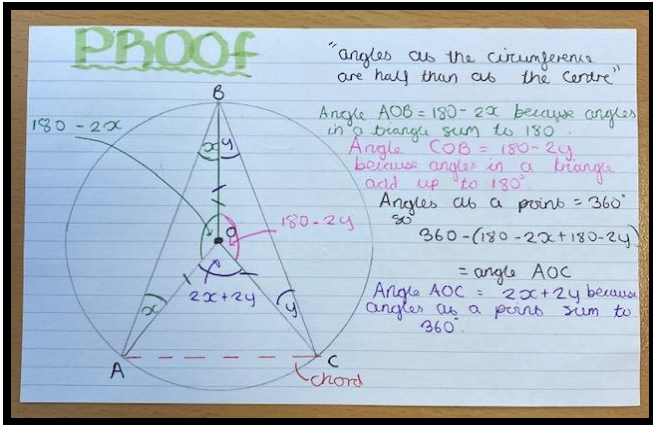 PROOF
"angles at the circumference
are half than at the centre"
B
180 - 2x
x y
Angle AOB = 180 - 2x because angles
in a triangle sum to 180.
Angle COB = 180 - 2y
because angles in a triangle
add up to 180°
Angles at a point = 360°
so
360 - (180 - 2x + 180 - 2y)
= angle AOC
Angle AOC = 2x + 2y because
angles at a point sum to
360°.
O
180 - 2y
2x + 2y
x
y
A
C
chord